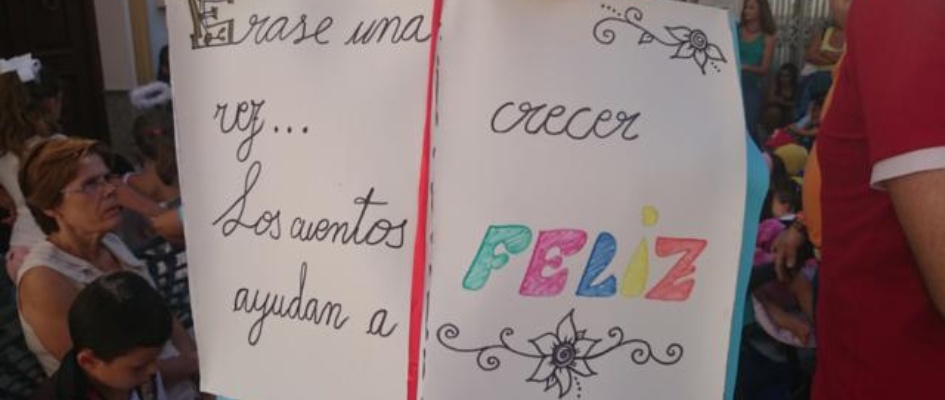 Erase una
vez...
Los cuentos
ayudan a
crecer
FELiZ